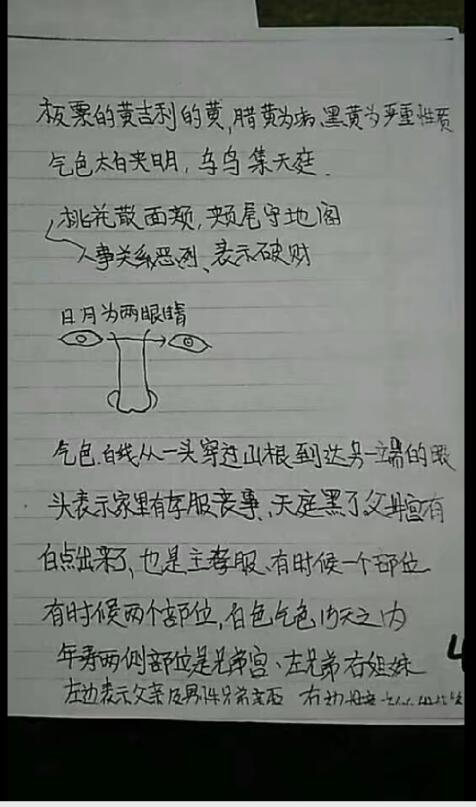 板栗的黄吉利的黄,腊黄为病、黑黄为严重性质
气色太白夹明,乌鸟集天庭.
桃花散面颊,颊尾守地阁
人事关系恶列、表示破财
日月为两眼睛
气色.白线从一头穿过山根到达另一端的眼
头表示家里有孝服丧事、天庭黑了父母宫有
白点出来了,也是主孝服、有时候一个部位
有时候两个部位,白色气色15天之内
年寿两侧部位是兄弟宫、左兄弟右姐妹
左边表示父亲及男性兄弟 右边母亲
4